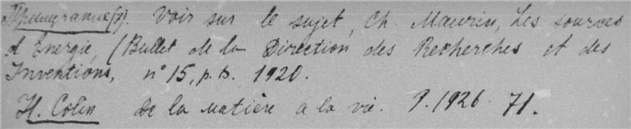 Voir sur le sujet, Ch. Maurin, Les sources
d'Énergie, (Bullet de la Direction des Recherches et des
Inventions, n° 15, p. 1920.
H. Colin de la matière a la vie. P. 1926. 71.